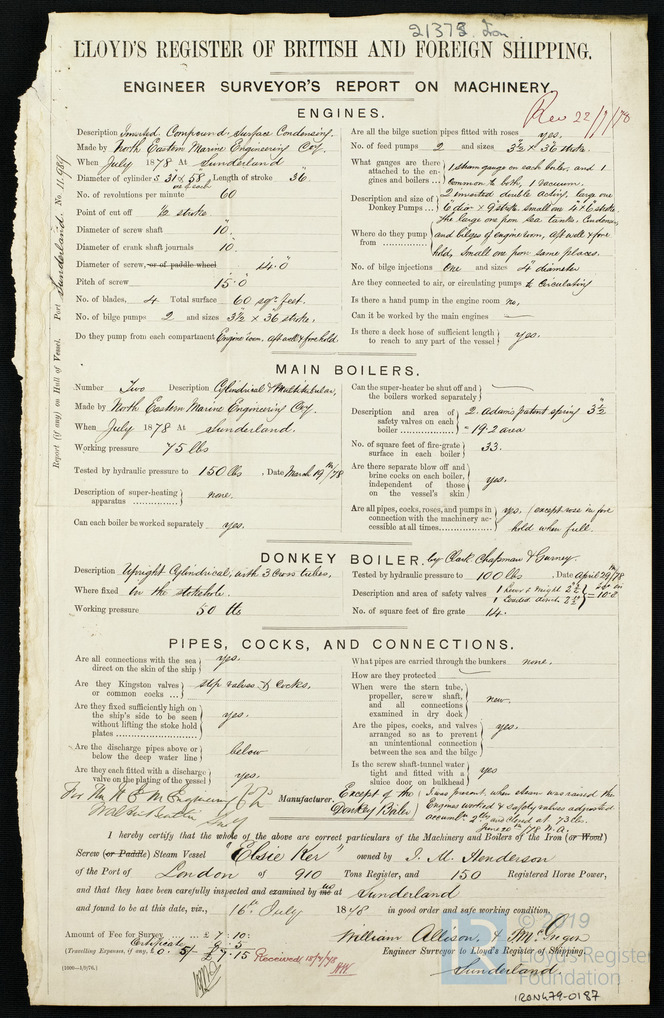 21373 Iron
LLOYD'S REGISTER OF BRITISH AND FOREIGN SHIPPING.
ENGINEER SURVEYOR'S REPORT ON MACHINERY
Rec 22/7/78
Report (if any) on Hull of Vessel. Port Sunderland. No. 11,989
ENGINES.
Description Inverted Compound, Surface Condensing.
Made by North Eastern Marine Engineering Coy.
When July 1878 At Sunderland
Diameter of cylinders 31 & 58 Length of stroke 36
one of each
No. of revolutions per minute 60
Point of cut off ½ stroke
Diameter of screw shaft 10"
Diameter of crank shaft journals 10"
Diameter of screw, or of paddle wheel 14.0"
Pitch of screw 15.0
No. of blades, 4 Total surface 60 sqr feet.
No. of bilge pumps 2 and sizes 3½ × 36 stroke.
Do they pump from each compartment Engine room, aft well & fore hold.
Are all the bilge suction pipes fitted with roses yes.
No. of feed pumps 2 and sizes 3½ × 36 stroke.
What gauges are there attached to the engines and boilers ... 1 steam gauge on each boiler, and 1 common to both, 1 vacuum.
Description and size of Donkey Pumps ... 2 inverted double acting, large one 6 diar × 9 stroke. Small one 4 × 6 stroke.
Where do they pump from ............ The large one from sea, tanks, Condenser, and bilges of engine room, aft well & fore hold, Small one from same places.
No. of bilge injections One and sizes 4" diameter
Are they connected to air, or circulating pumps to Circulating
Is there a hand pump in the engine room no,
Can it be worked by the main engines —
Is there a deck hose of sufficient length to reach to any part of the vessel yes.
MAIN BOILERS.
Number Two Description Cylindrical & Multitubular,
Made by North Eastern Marine Engineering Coy.
When July 1878 At Sunderland.
Working pressure 75 lbs
Tested by hydraulic pressure to 150 lbs . Date March 19th/78
Description of super-heating apparatus ............ none.
Can each boiler be worked separately yes.
Can the super-heater be shut off and the boilers worked separately —
Description and area of safety valves on each boiler ............ 2. Adams patent spring 3½" = 19.2 area
No. of square feet of fire-grate surface in each boiler 33.
Are there separate blow off and brine cocks on each boiler, independent of those on the vessel's skin yes.
Are all pipes, cocks, roses, and pumps in connection with the machinery accessible at all times............ yes. (except rose in fore hold when full.
DONKEY BOILER. by Clark Chapman & Gurney.
Description Upright Cylindrical, with 3 Cross tubes,
Where fixed In the stokehole.
Working pressure 50 lbs
Tested by hydraulic pressure to 100 lbs . Date April 29th/78
Description and area of safety valves 1 Lever & Weight 2½ 1 Loaded direct. 2½ = 10.8
No. of square feet of fire grate 14.
PIPES, COCKS, AND CONNECTIONS.
Are all connections with the sea direct on the skin of the ship yes.
Are they Kingston valves or common cocks ... stop valves & Cocks.
Are they fixed sufficiently high on the ship's side to be seen without lifting the stoke hold plates ............ yes.
Are the discharge pipes above or below the deep water line below
Are they each fitted with a discharge valve on the plating of the vessel yes.
What pipes are carried through the bunkers none.
How are they protected —
When were the stern tube, propeller, screw shaft, and all connections examined in dry dock new.
Are the pipes, cocks, and valves arranged so as to prevent an unintentional connection between the sea and the bilge yes.
Is the screw shaft-tunnel water tight and fitted with a sluice door on bulkhead yes
For the N E M Engineering Coy Manufacturer.
Except of the Donkey Boiler
I was present when steam was raised the Engines worked & Safety valves adjusted
and closed at 73 lbs.
June 20th/78 W.A.
I hereby certify that the whole of the above are correct particulars of the Machinery and Boilers of the Iron (or Wood)
Screw (or Paddle) Steam Vessel "Elsie Ker" owned by J. M. Henderson
of the Port of London of 910 Tons Register, and 150 Registered Horse Power,
and that they have been carefully inspected and examined by me us at Sunderland
and found to be at this date, viz., 16th July 1878 in good order and safe working condition.
Amount of Fee for Survey ... £ 7 . 10 :
Certificate 5
(Travelling Expenses, if any, £0. 5/- £7.15 Received 18/7/78
William Allison. & J. McGregor
Engineer Surveyor to Lloyd's Register of Shipping.
Sunderland.
© 2019
LR
Lloyd's Register
Foundation
IRON479-0187